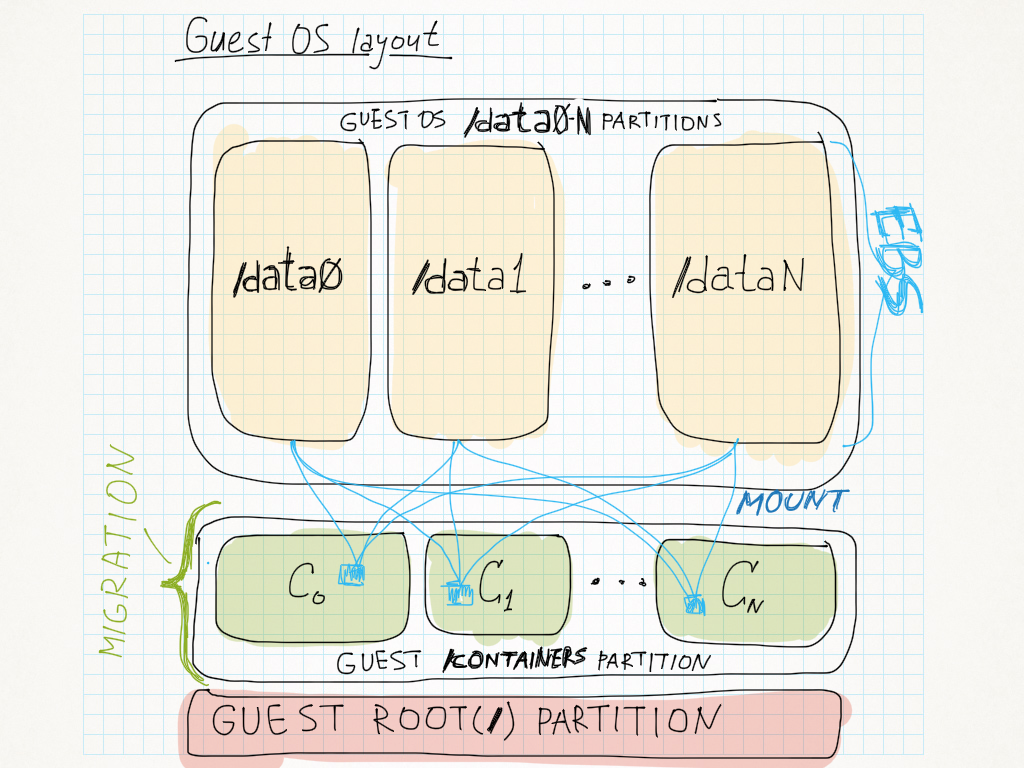 Guest OS layout
GUEST OS /data0-N PARTITIONS
/data0
/data1
...
/dataN
EBS
MOUNT
MIGRATION
C0
C1
...
CN
GUEST /CONTAINERS PARTITION
GUEST ROOT(/) PARTITION